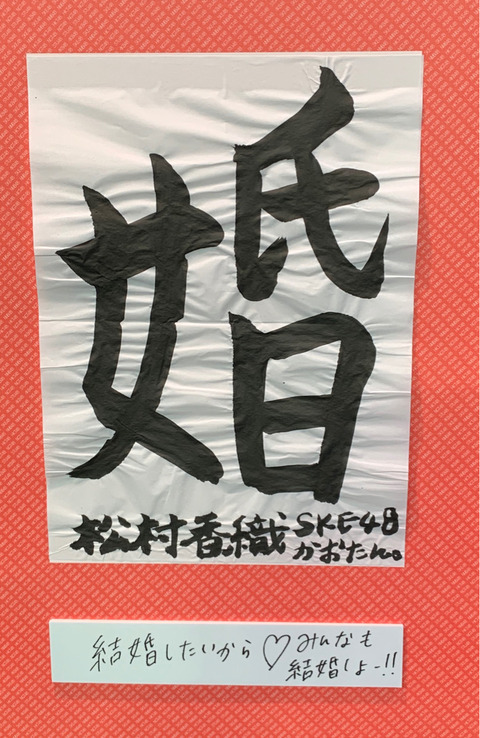 婚
松村香織 SKE48
かおたん。
結婚したいから♡みんなも
結婚しよー!!